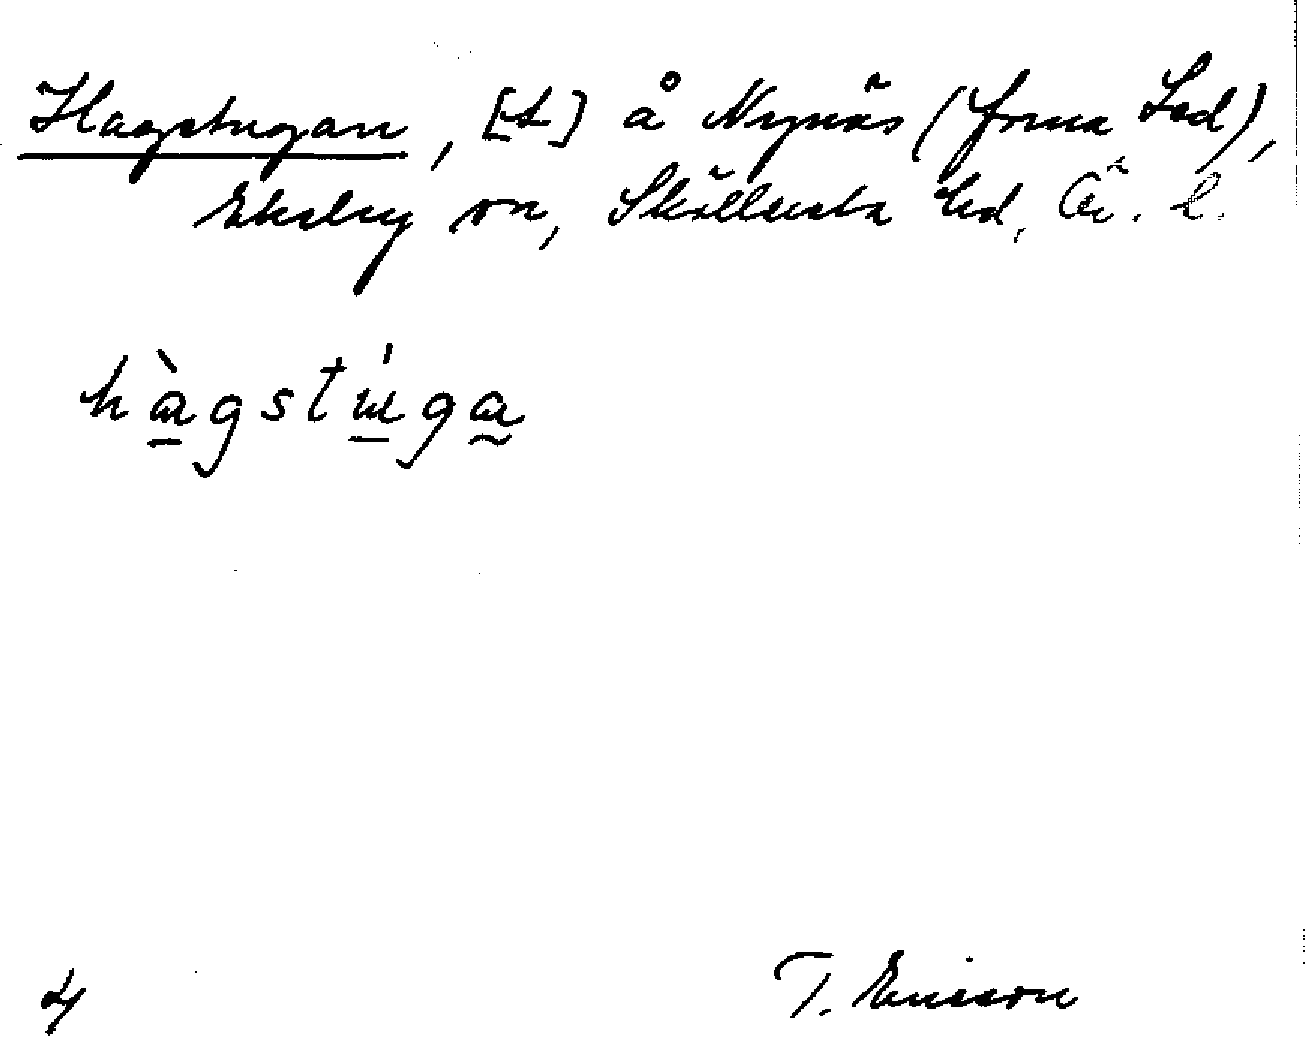 Hagstugan, [t] å Nynäs (förra Led),
Ekeby sn, Sköllersta hd, Ö. l.
hàgstúga
4 T. Ericson